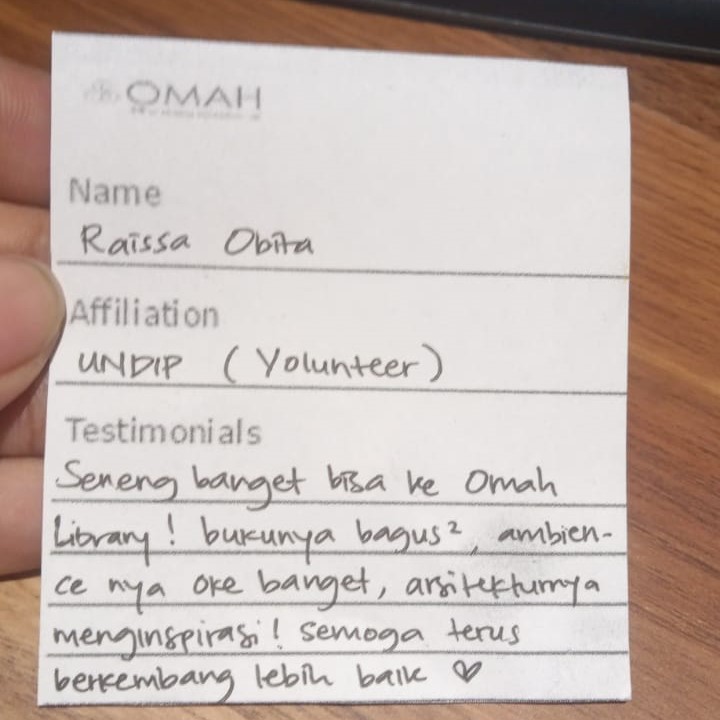 OMAH
Name
Raissa Obita
Affiliation
UNDIP (Volunteer)
Testimonials
Seneng banget bisa ke Omah
Library! bukunya bagus², ambien-
ce nya oke banget, arsitekturnya
menginspirasi! semoga terus
berkembang lebih baik ♡